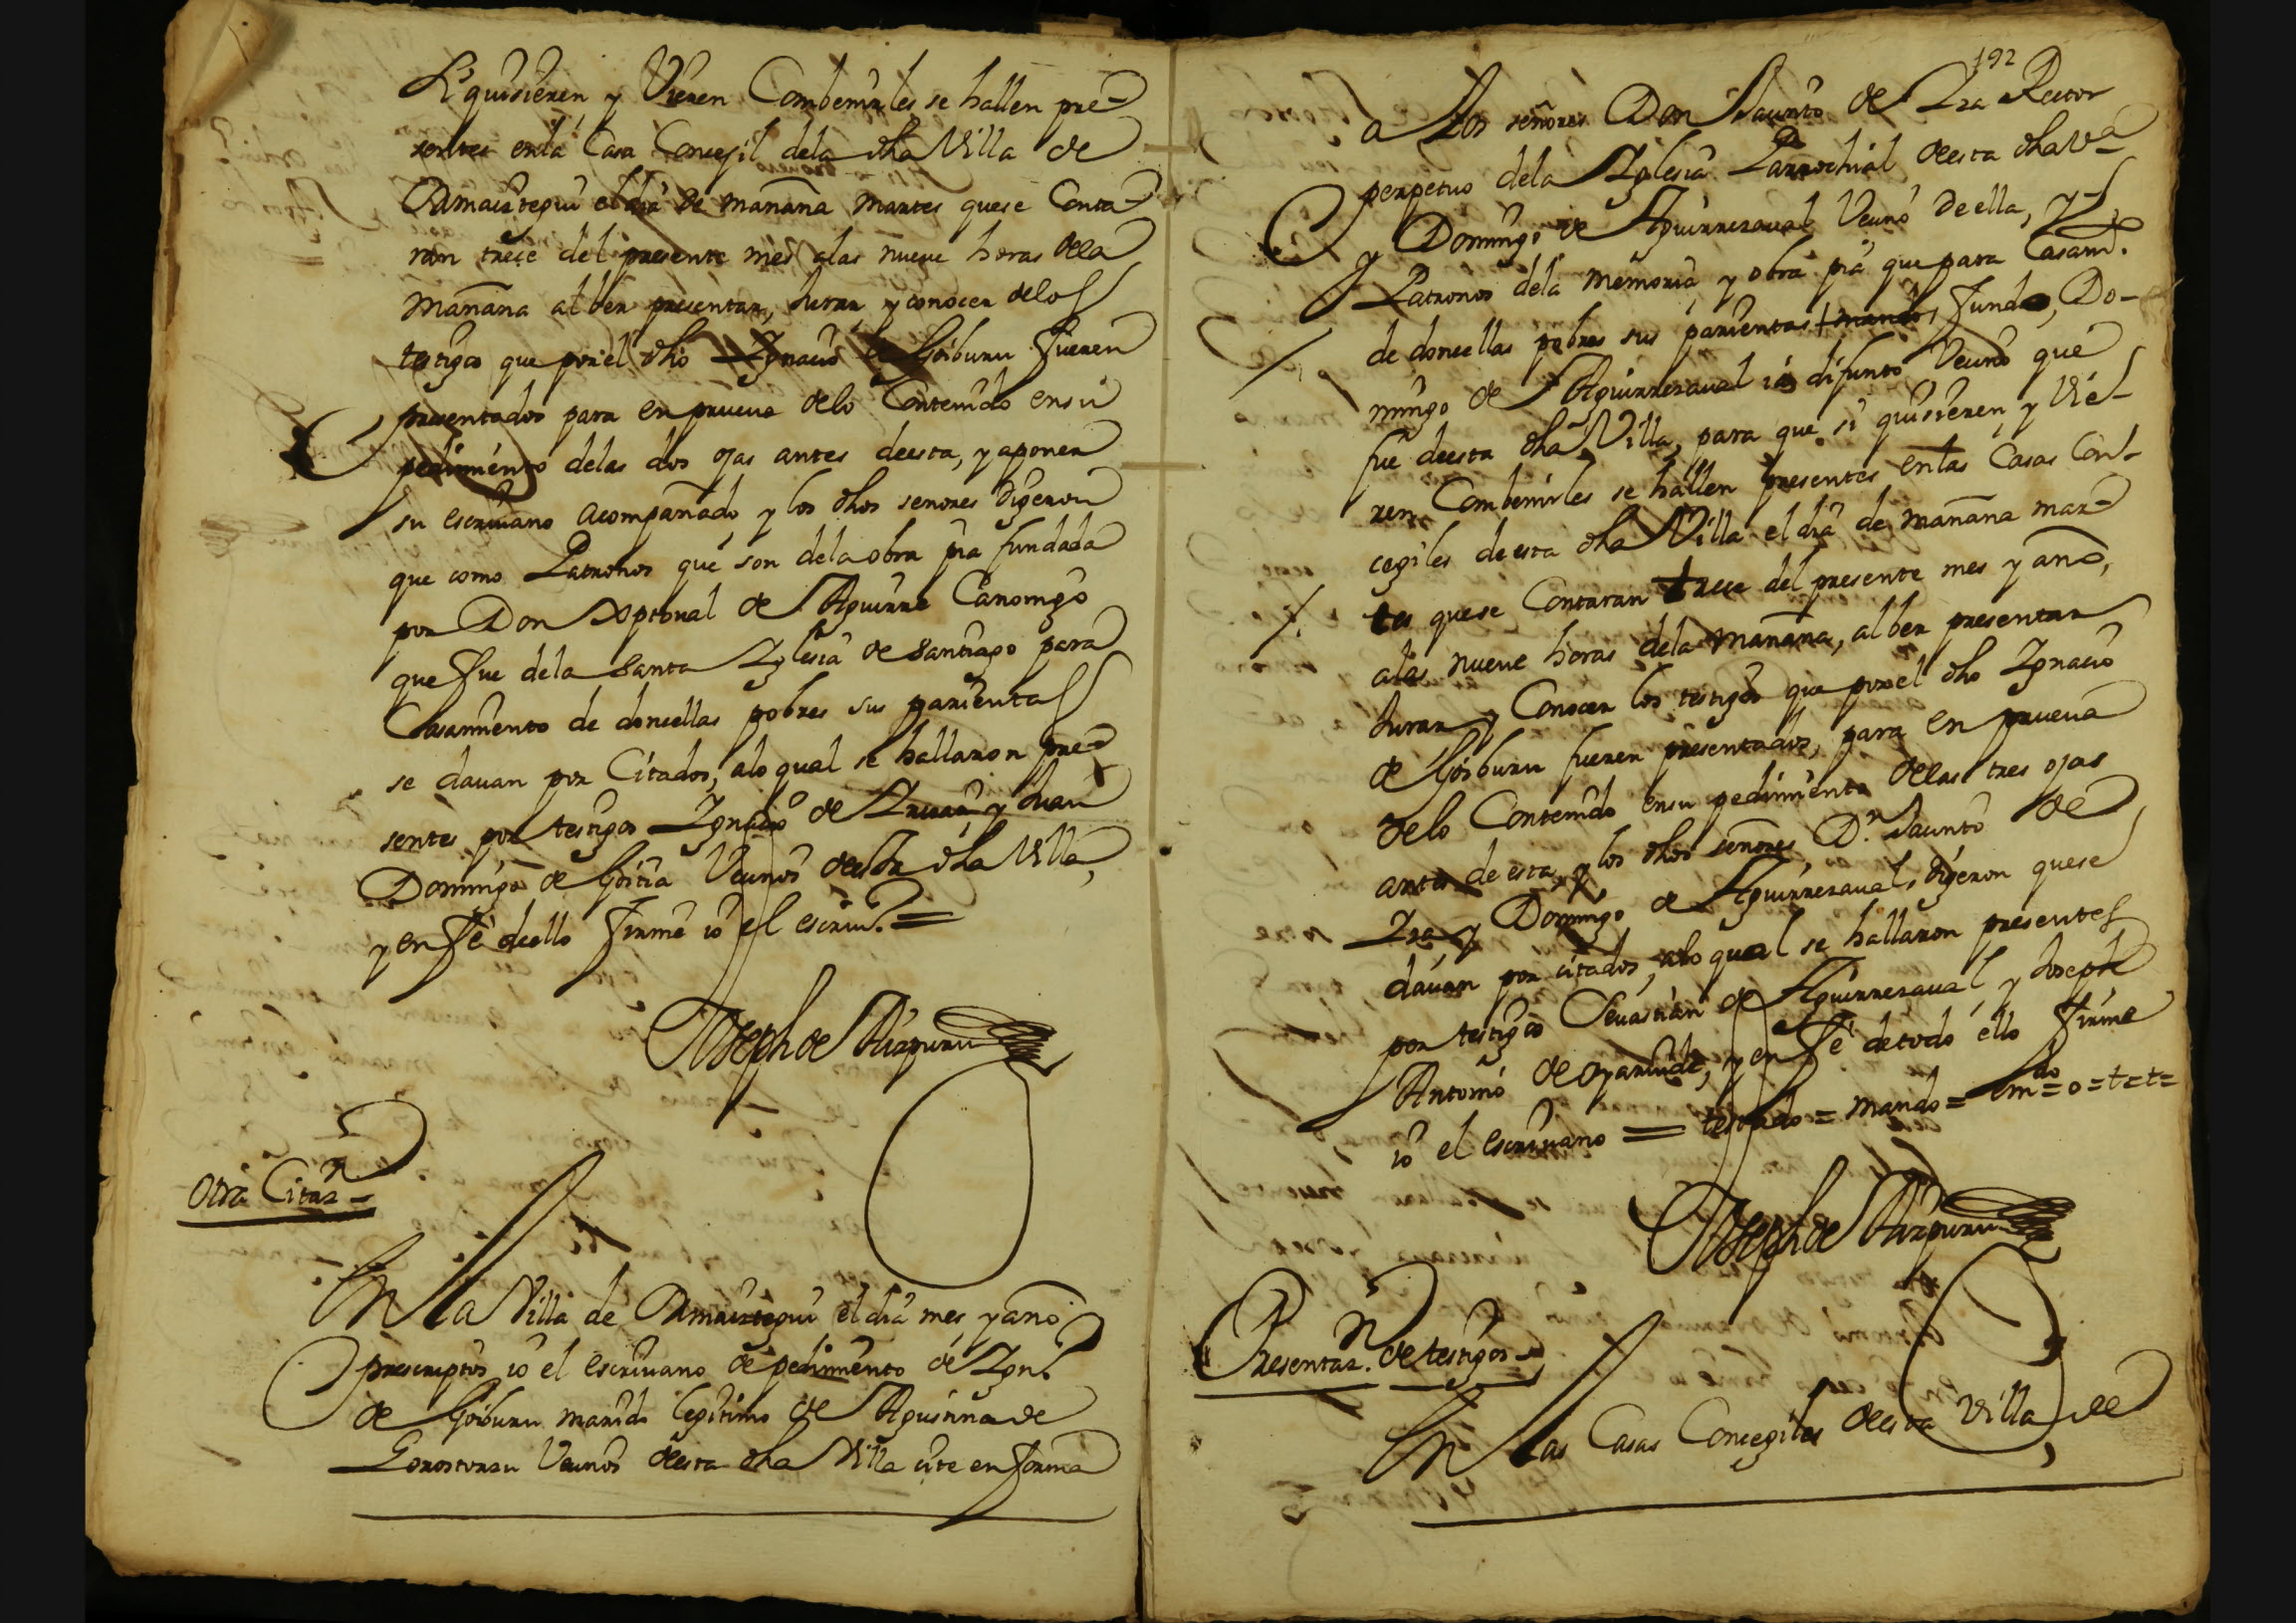 si quisieren, y Vieren Combenirles se hallen pre-
sentes en la Casa Concegil de la dha Villa de
Ormaiztegui el dia de mañana martes que se Conta-
ran trece del presente mes a las nueve horas de la
mañana al ber presentar, Jurar y conocer de los
testigos que por el dho Ygnacio de Goiburu fueren
presentados para en prueva de lo Contenido en su
pedimiento de las dos ojas antes de esta, y a poner
su escrivano acompañado, y los dhos señores digeron
que como Patronos que son de la obra pia fundada
por Don Xptoval de Aguirre Canonigo
que fue de la Santa Yglesia de Santiago para
Casamiento de doncellas pobres sus parientas
se davan por Citados, a lo qual se hallaron pre-
sentes por testigos Ygnacio de y Juan
Domingo de Goitia Vecinos de esta dha Villa,
y en fe de ello firme io el escriv.º =
Joseph de Aizpuru
Otra Citaz.n
En la Villa de Ormaiztegui, el dia mes y año
prescriptos io el escrivano de pedimiento de Ygn.º
de Goiburu marido legitimo de Agustina de
Gorostorzu Vecinos de esta dha Villa cite en forma
192
a los señores Don Jacinto de Yza Rector
perpetuo de la Yglesia Parrochial de esta dha V.a
y Domingo de Aguirrezaval Vecino de ella,
Patronos de la memoria, y obra pia que para Casam.to
de doncellas pobres sus parientas mando fundo, Do-
mingo de Aguirrezaval ia difunto Vecino que
fue de esta dha Villa, para que si quisieren, y Vie-
ren Combenirles se hallen presentes en las Casas Con-
cegiles de esta dha Villa el dia de mañana mar-
tes que se Contaran trece del presente mes y año,
a las nueve horas de la mañana, al ber presentar
Jurar y Conocer los testigos que por el dho Ygnacio
de Goiburu fueren presentados, para en prueva
de lo Contenido en su pedimiento de las tres ojas
antes de esta, y los dhos señores, D.n Jacinto de
Yza, y Domingo de Aguirrezaval, digeron que se
davan por citados, a lo qual se hallaron presentes
por testigos Sevastian de Aguirrezaval y Joseph
Antonio de Oyarvide, y en fe de todo ello firme
io el escrivano = testado = mando = Em.do = o = t = t =
Joseph de Aizpuru
Presentaz.n de testigos
En las Casas Concegiles de esta Villa de